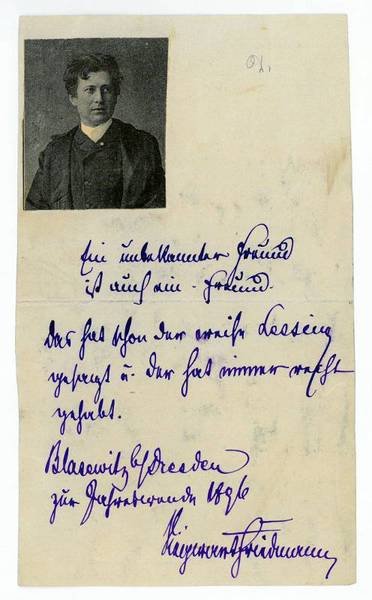 Ein unbekannter Freund
ist auch ein - Freund.
Das hat schon der weise Lessing
gesagt u. der hat immer recht
gehabt.
Blasewitz b/Dresden
zur Jahreswende 1896
Siegwart Friedmann